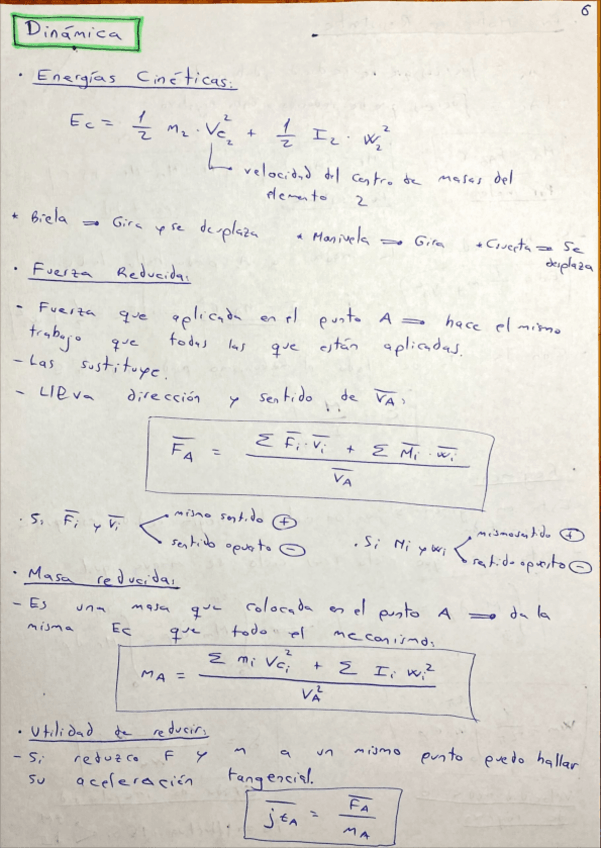 6
Dinámica
· Energías Cinéticas:
Ec = 1/2 m₂ · Vc₂² + 1/2 I₂ · w₂²
velocidad del centro de masas del
elemento 2
* Biela ⇒ Gira y se desplaza * Manivela ⇒ Gira * Corredera ⇒ Se
desplaza
· Fuerza Reducida:
- Fuerza que aplicada en el punto A ⇒ hace el mismo
trabajo que todas las que están aplicadas.
- Las sustituye.
- Lleva dirección y sentido de V̅A:
F̅A = (Σ F̅i · V̅i + Σ M̅i · w̅i) / V̅A
· Si F̅i y V̅i mismo sentido (+) · Si Mi y wi mismo sentido (+)
sentido opuesto (-) sentido opuesto (-)
· Masa reducida:
- Es una masa que colocada en el punto A ⇒ da la
misma Ec que todo el mecanismo:
mA = (Σ mi Vci² + Σ Ii wi²) / VA²
· Utilidad de reducir:
- Si reduzco F y m a un mismo punto puedo hallar
su aceleración tangencial.
j̅tA = F̅A / mA